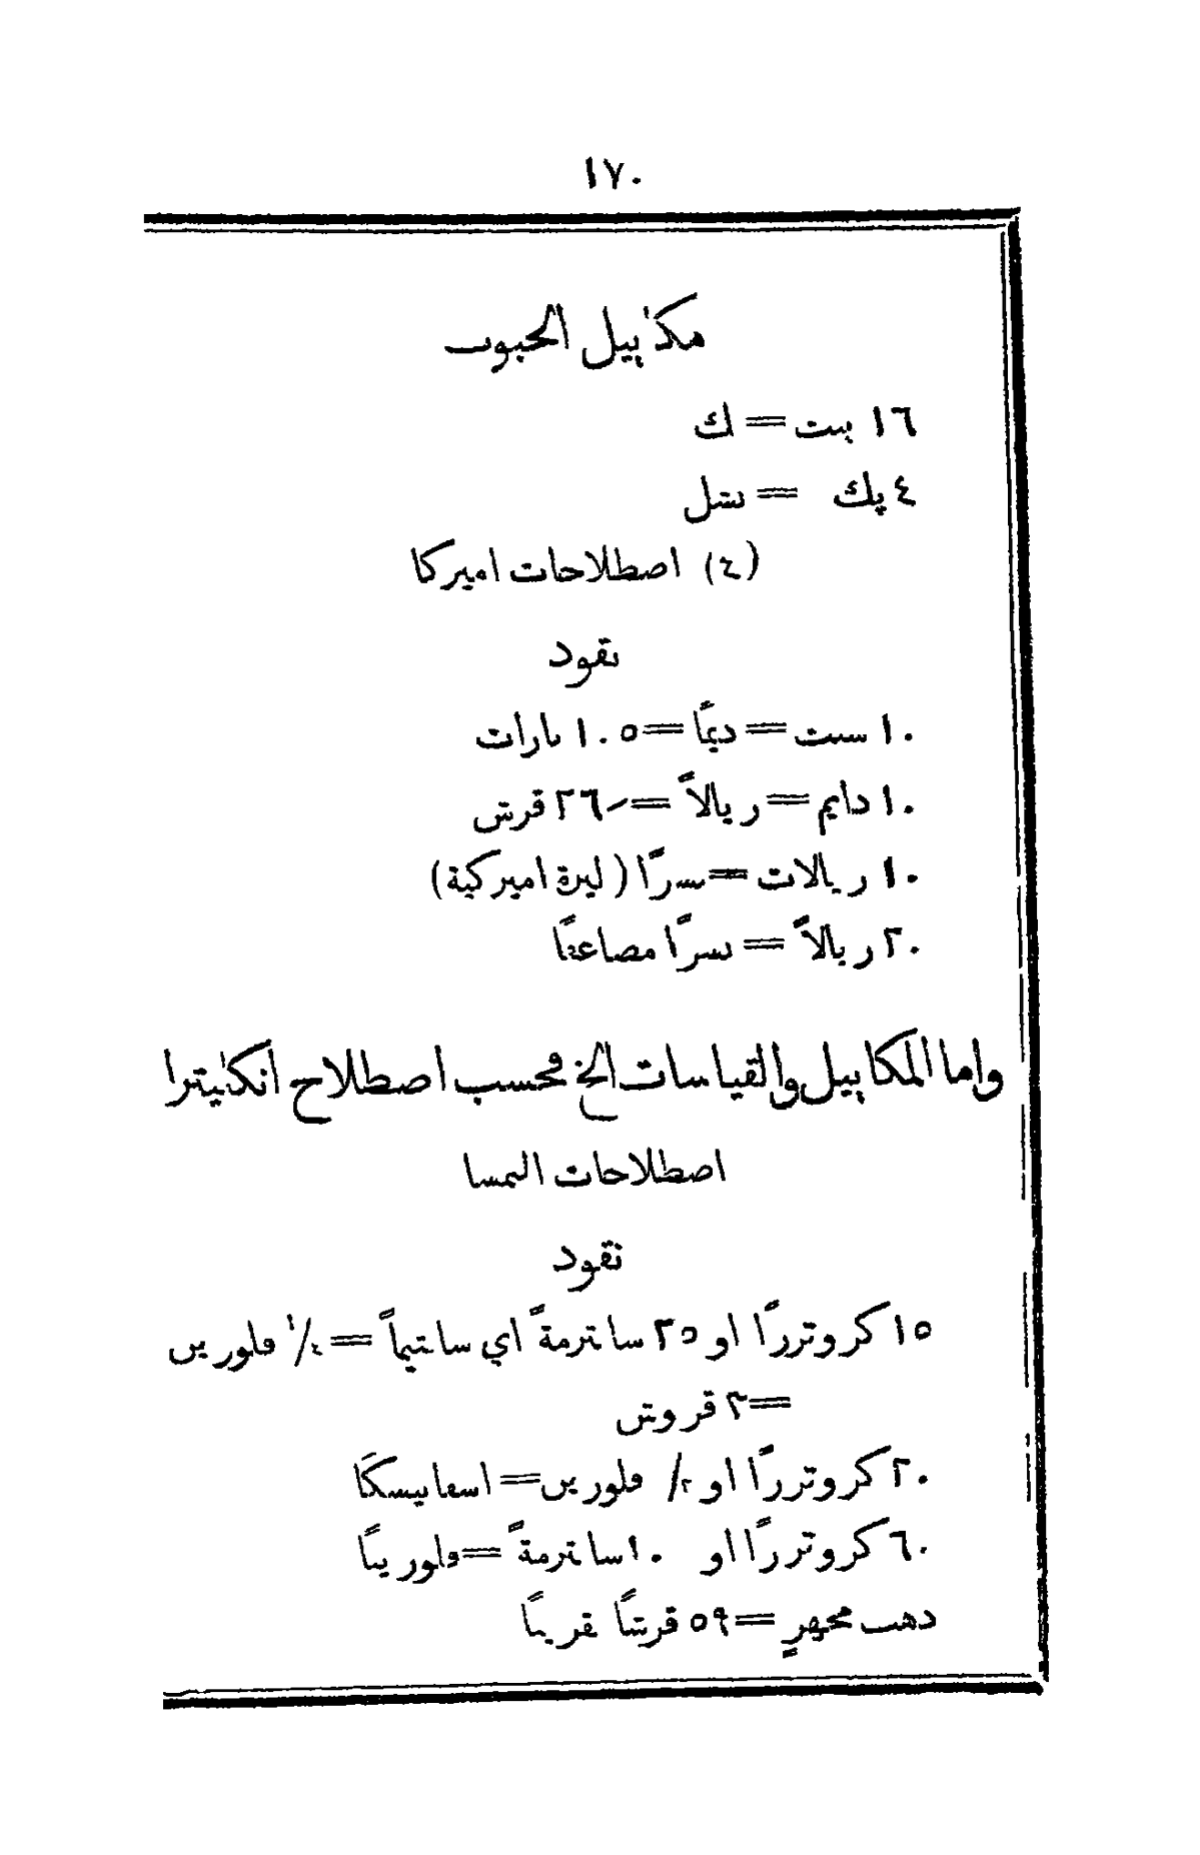 ١٧٠
مكاييل الحبوب
١٦ بيت = ك
٤ پك = بشل
(٤) اصطلاحات اميركا
نقود
١٠ سنت = ديمًا = ١٠٥ بارات
١٠ دايم = ريالاً = ٢٦ قرش
١٠ ريالات = نسرًا (ليرة اميركية)
٢٠ ريالاً = نسرًا مضاعفًا
واما المكاييل والقياسات الخ فحسب اصطلاح انكليترا
اصطلاحات النمسا
نقود
١٥ كروتزرًا او ٢٥ سانترمةً اي سانتيمًا = ١/٤ فلورين
= ٣ قروش
٢٠ كروتزرًا او فلورين = اسفانيسكا
٦٠ كروتزرًا او ١٠ سانترمةً = فلورينًا
ذهب مجهر = ٥٩ قرشًا تقريبًا